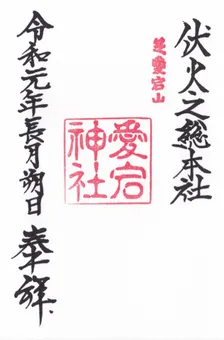 伏火之総本社
芝愛宕山
愛宕神社
令和元年長月朔日
奉拝